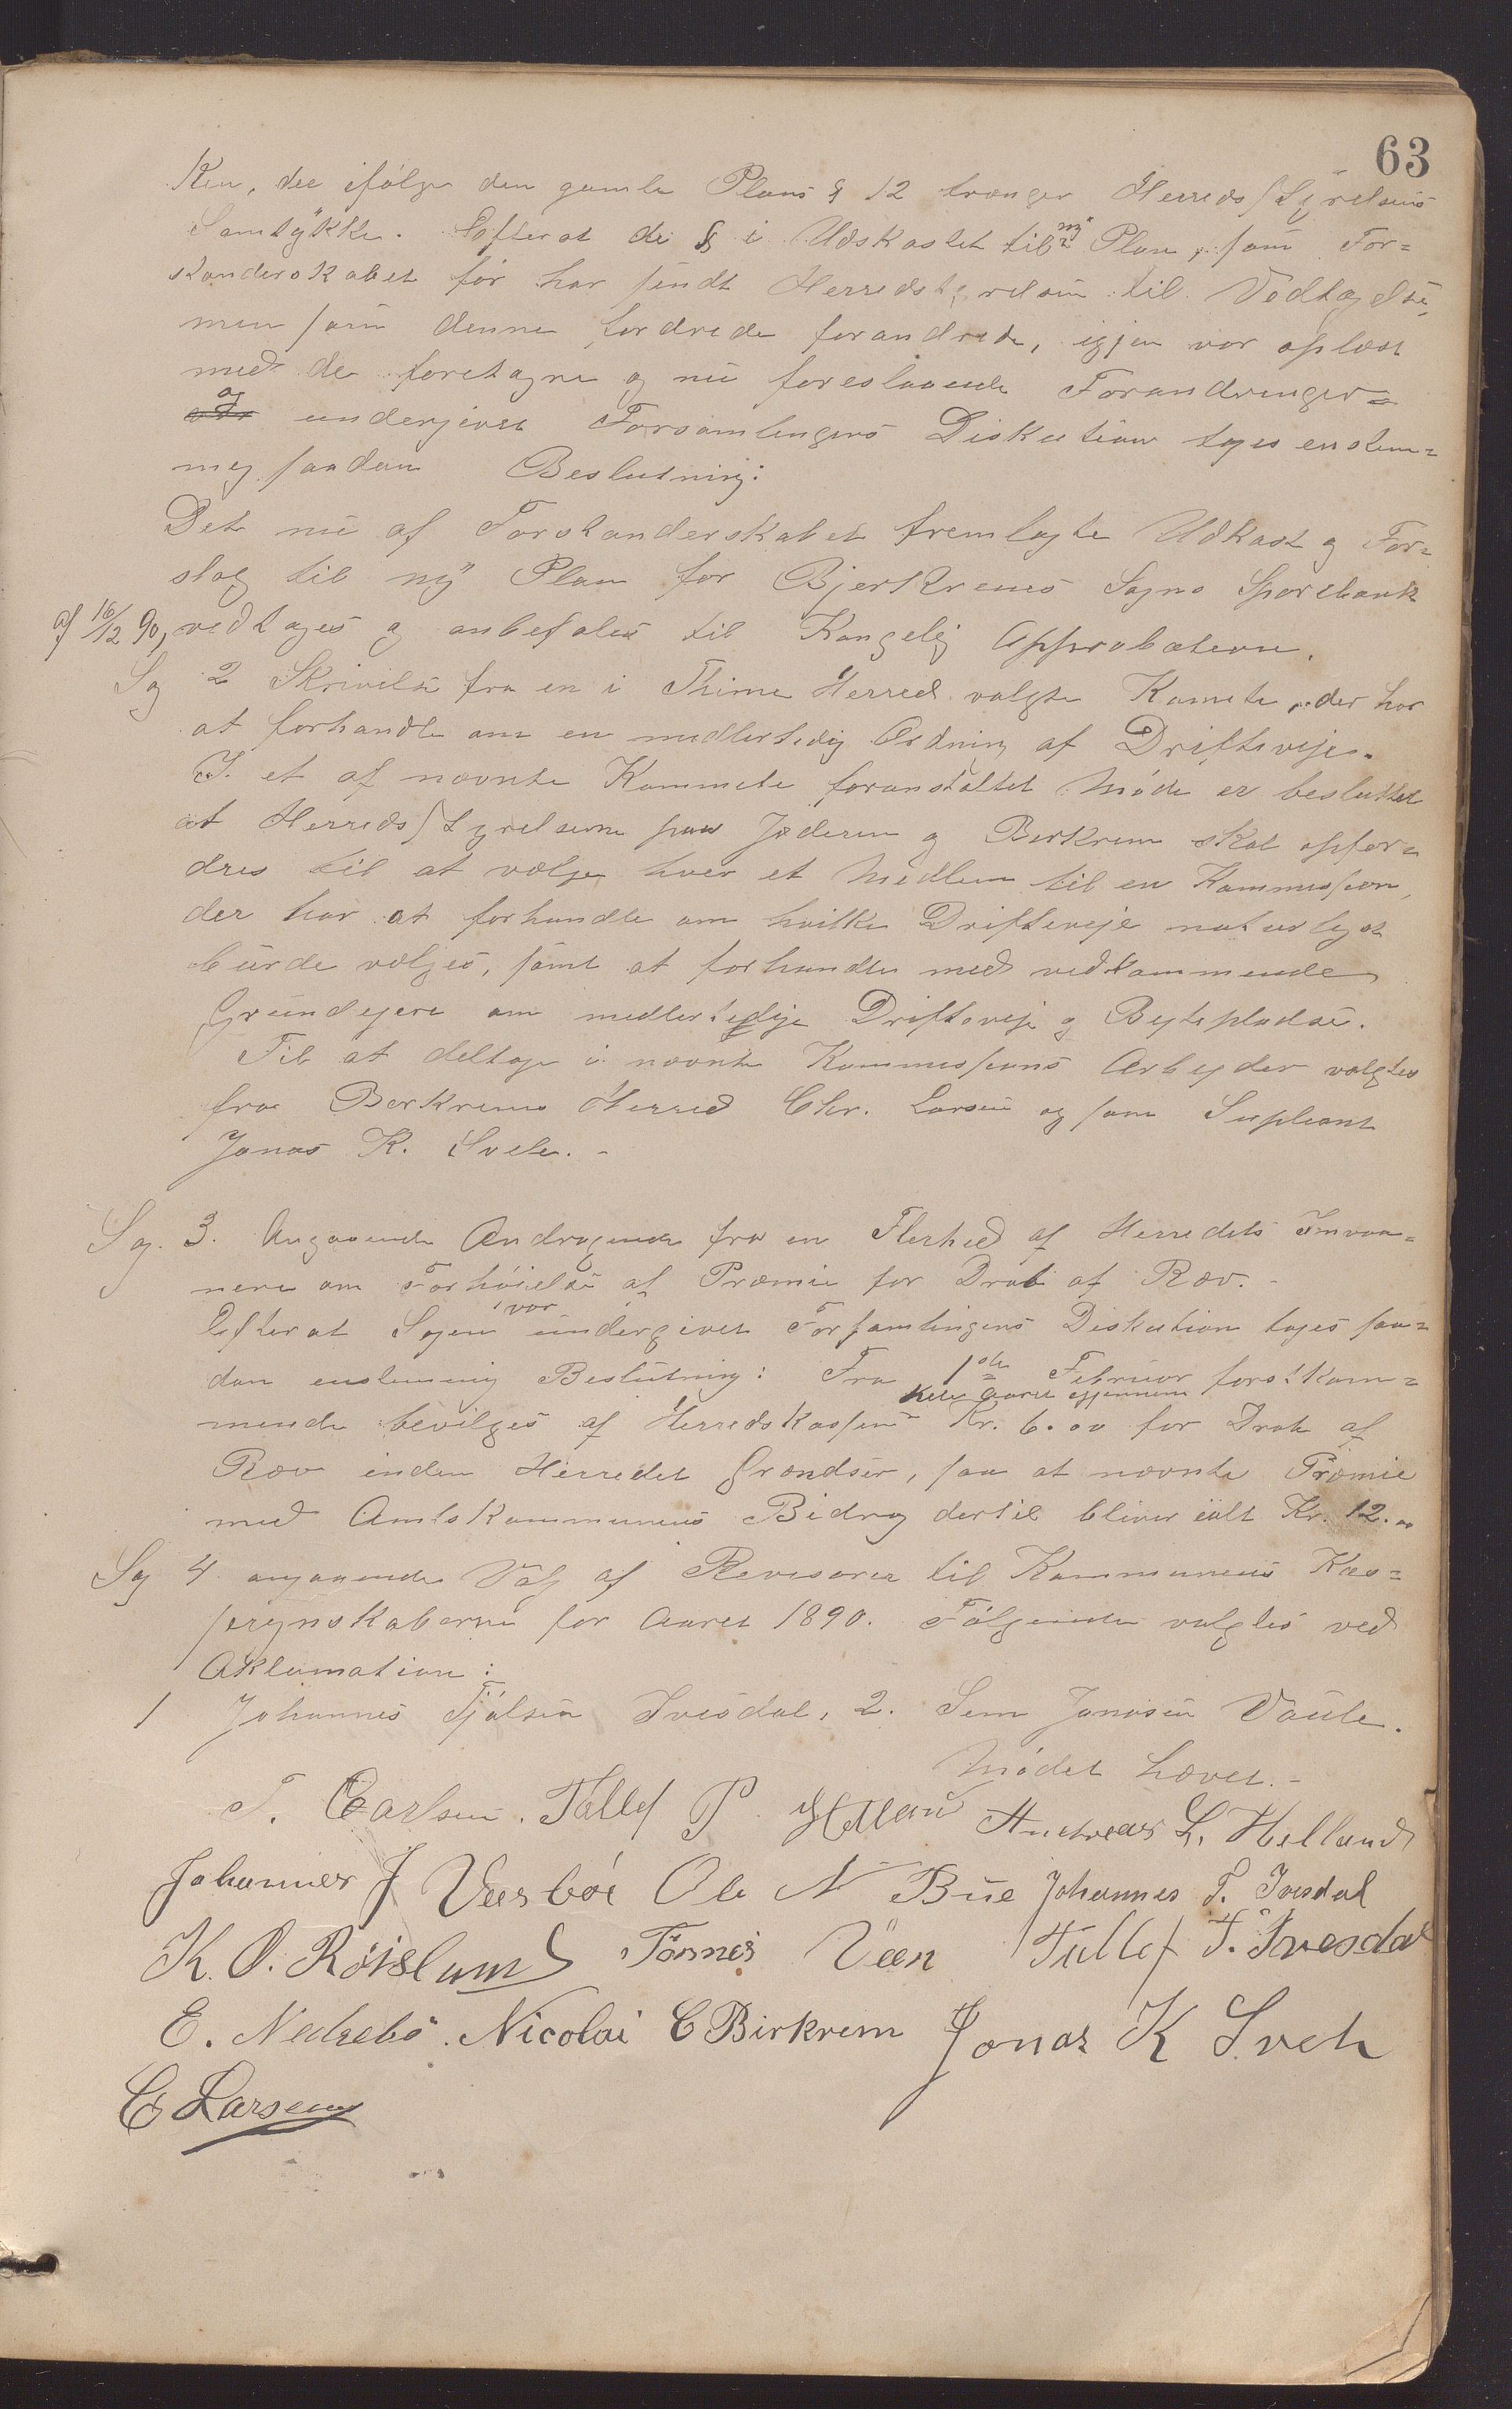 63
Ken, der ifølge den gamle Plans § 12 trænger Herredsstyrelsens
Samtykke. Efterat de § i Udkastet til ny Plan, som For=
standerskabet før har sendt Herredstyrelsen til Vedtagelse,
men som denne fordrede forandrede, igjen var oplæst
med de foretagne og nu foreslaaende Forandringer=
og undergivet Forsamlingens Diskution toges enstem=
mig saadan Beslutning:
Det nu af Forstanderskabet fremlagte Udkast og For=
slag til ny Plan for Bjerkreims Sogns Sparebank
af 16/12 90, vedtages og anbefales til Kongelig Approbation.
Sag 2 Skrivelse fra en i Thime Herred valgte Komite, der har
at forhandle om en midlertidig Ordning af Driftsveje.
I et af nævnte Kommite foranstaltet Møde er besluttet
at Herredsstyrelserne paa Jæderen og Birkrem skal opfor=
dres til at vælge hver et Medlem til en Kommission,
der har at forhandle om hvilke Driftsveje naturligst
burde vælges, samt at forhandle med vedkommende
Grundejere om midlertidige Driftsveje og Bytepladse.
Til at deltage i nævnte Kommissions Arbejder valgtes
fra Berkrems Herred Chr. Larsen og som Supleant
Jonas K. Svele. -
Sag. 3. Angaaende Andragende fra en Flerhed af Herredets Invaa=
nere om Forhøielse af Præmie for Drab af Ræv. -
Efterat Sagen var undergivet Forsamlingens Diskution toges saa=
dan enstemmig Beslutning: Fra 1ste Februar førstkom=
mende bevilges af Herredskassen hele Aaret igjennem Kr. 6.00 for Drab af
Ræv inden Herredet Grændser, saa at nævnte Præmie
med Amtskommunens Bidrag dertil bliver ialt Kr. 12.00
Sag 4 angaaende Valg af Revisorer til Kommunens Kas=
seregnskaberne for Aaret 1890. Følgende valgtes ved
Aklamation:
1 Johannes Tjølsen Ivesdal, 2. Sem Jonasen Vaule.
Mødet hævet. -
T. Carlsen. Tollef P. Helland Andreas L. Helland
Johannes J Vasbøe Ole N Bue Johannes T. Ivesdal
K. O. Røislund Tønnes Veen Tollef T. Ivesdal
E. Nedrebø. Nicolai C Birkrem Jonas K Svele
C Larsen